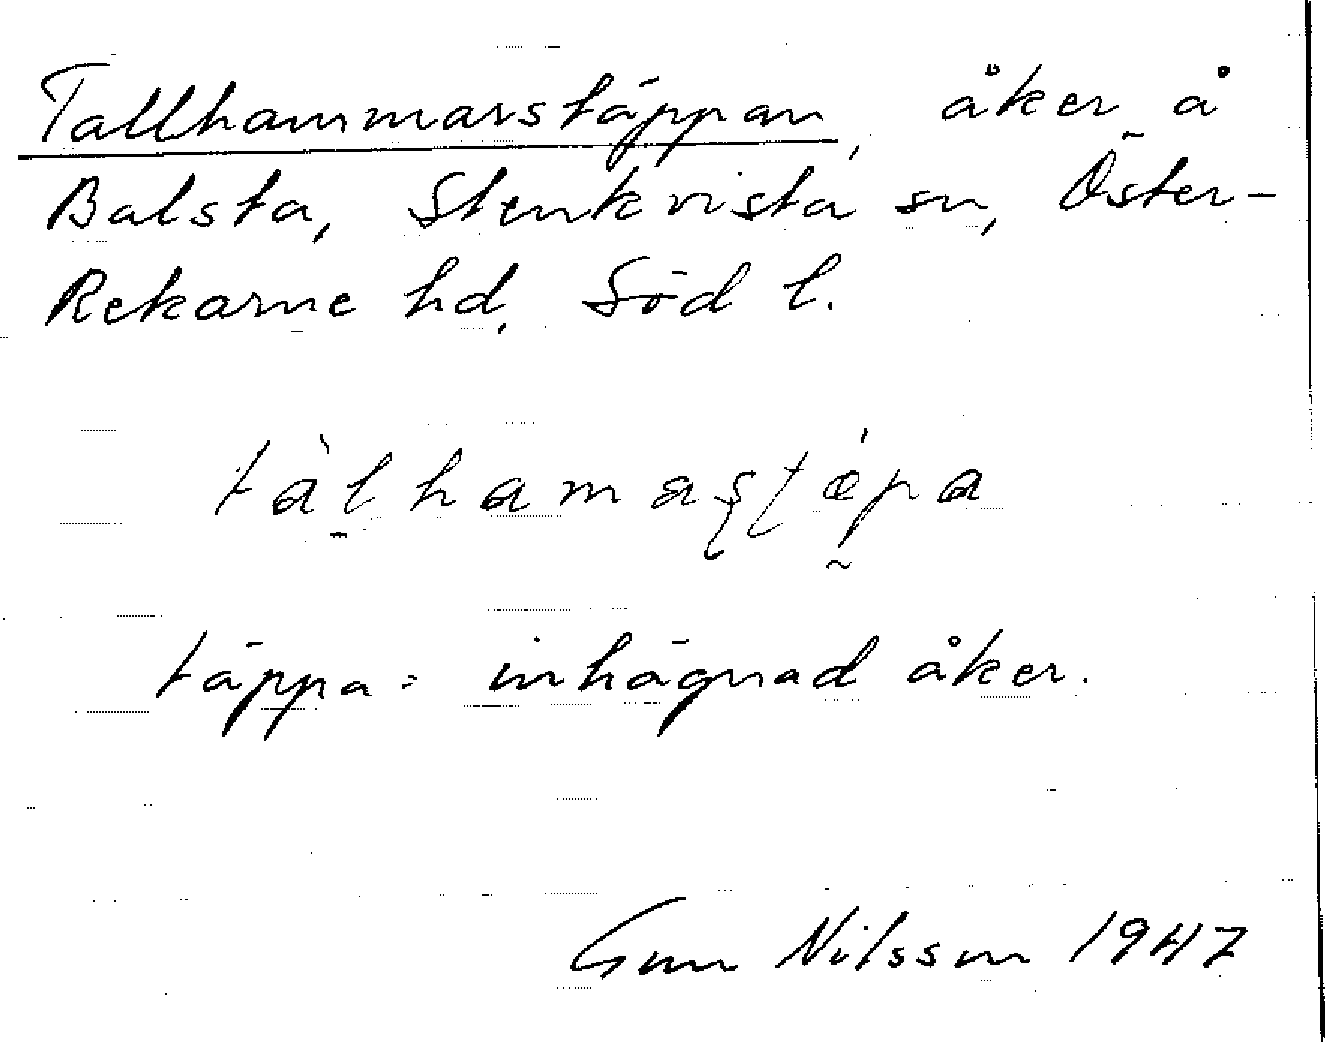 Tallhammarstäppan, åker å
Balsta, Stenkvista sn, Öster-
Rekarne hd, Söd l.
tàl̠hamaʂʈǽpa
täppa = inhägnad åker.
Gun Nilsson 1947